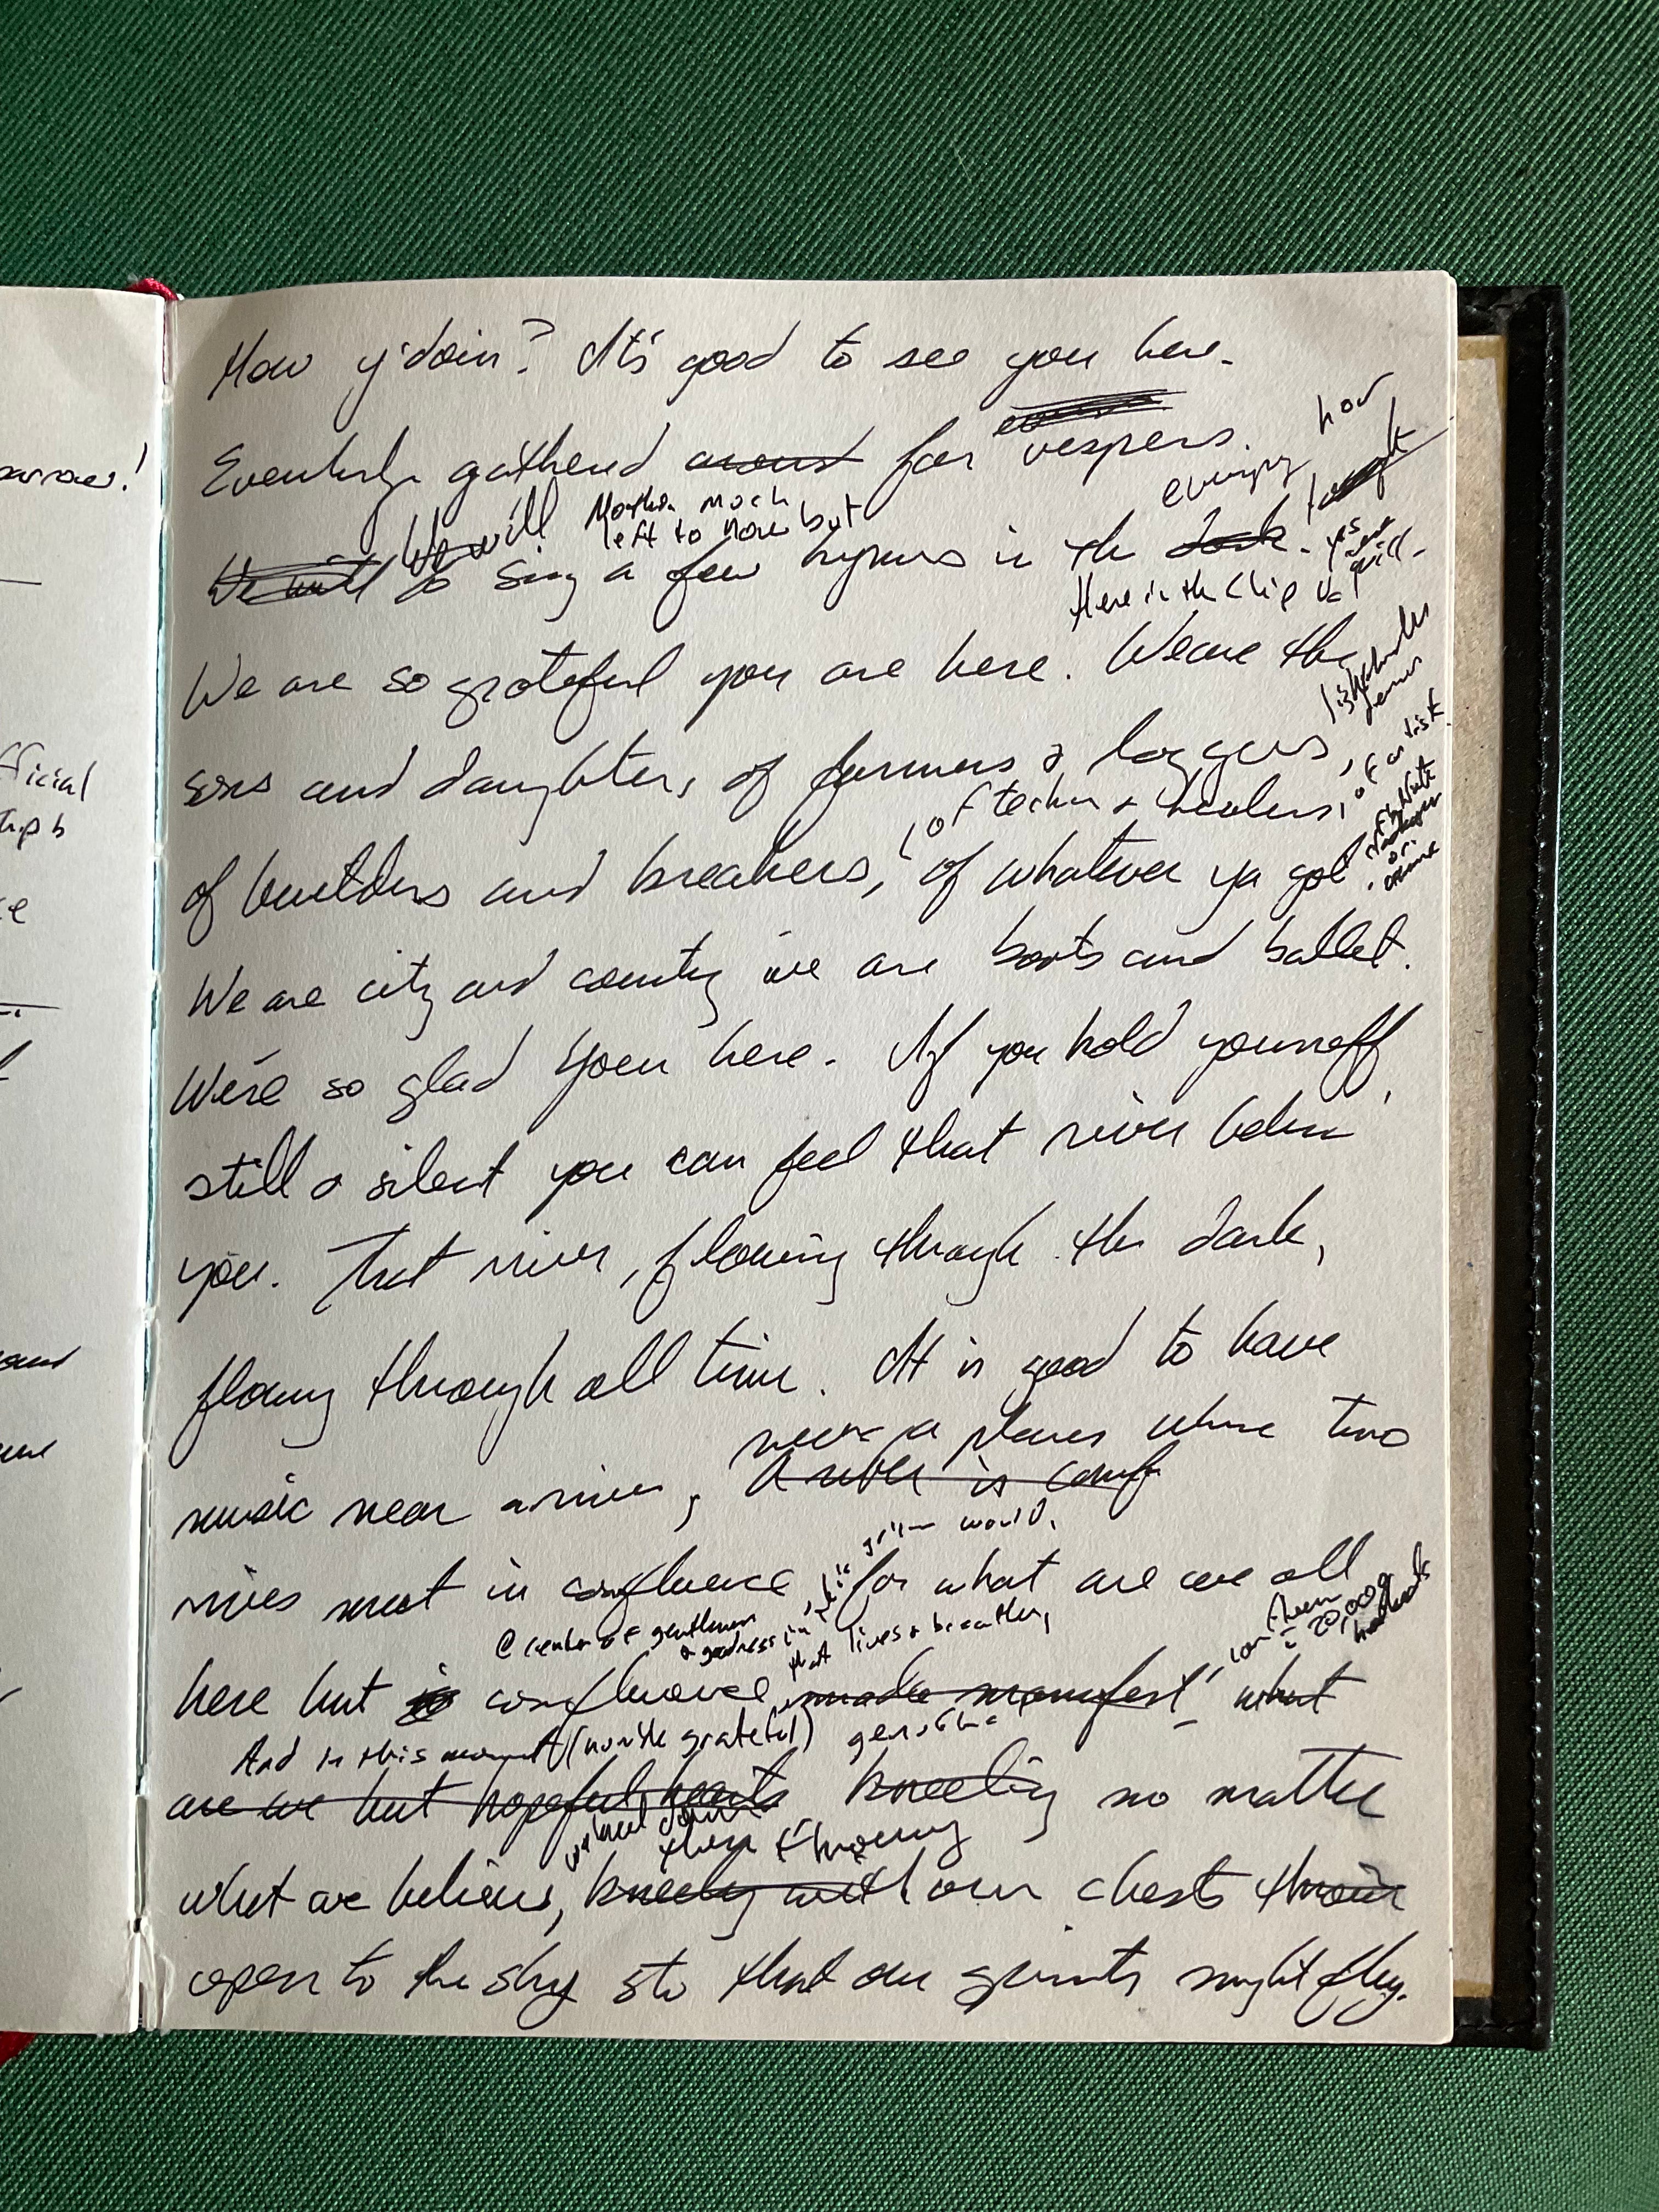 How y'doin? It's good to see you here.
gathered around for vespers.
evening hour
We will
left to now but
We will to sing a few hymns in the dark.
yes we will.
Here in the Chip Val
We are so grateful you are here. We are the
sons and daughters of farmers & loggers,
, of teachers & healers, of artists
of builders and breakers, of whatever ya got.
We are city and country we are boots and ballet.
We're so glad you're here. If you hold yourself
still & silent you can feel that river below
you. That river, flowing through the dark,
flowing through all time. It is good to have
near a places where two
music near a river, A river is conf
world,
rives meet in confluence, for what are we all
@ center of gentleness & goodness in
that lives & breathes,
20,000 heartbeats
here but is confluence made manifest, what
And in this moment (humble grateful) genuine
are we but hopeful hearts kneeling no matter
we kneel down
then throwing
what we believe, kneeling with our chests thrown
open to the sky so that our spirits might fly.
arrow!
fficial